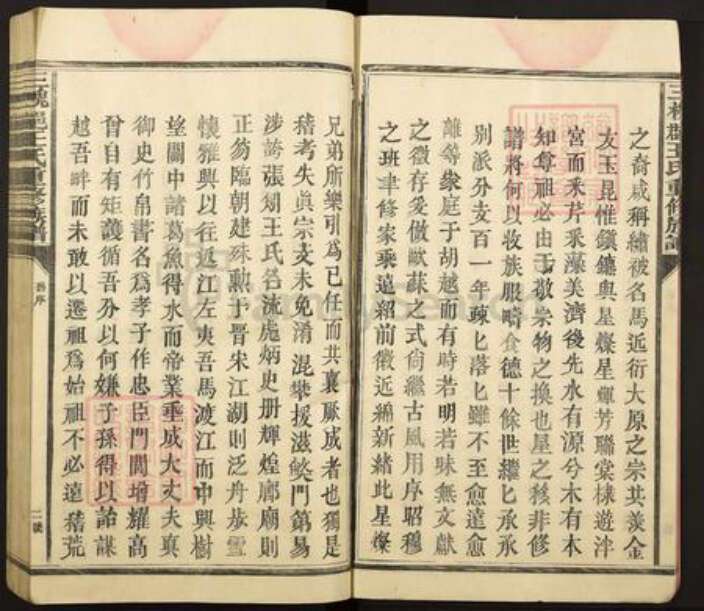 之裔咸稱繡被名馬近衍大原之宗共羨金
友玉昆惟鎭鐮與星燦星輝芳聯棠棣遊泮
宮而釆芹釆藻美濟後先水有源兮木有本
知尊祖必由于敬宗物之換也星之移非修
譜將何以收族服疇食德十餘世繼匕承承
別派分支百一年疎匕落匕雖不至愈遠愈
離等家庭于胡越而有時若明若昧無文獻
之徵存爰倣歐蘇之式尙繼古風用序昭穆
之班聿修家乘遠紹前徽近綿新緒此星燦
兄弟所樂引爲已任而共襄厥成者也獨是
稽考失眞宗支未免淆混攀援滋弊門第易
涉誇張刱王氏名流處炳史册輝煌廊廟則
正笏臨朝建殊勲于晋宋江湖則泛舟㳟雪
懷雅興以往返江左夷吾馬渡江而中興樹
望關中諸葛魚得水而帝業垂成大丈夫眞
御史竹帛書名爲孝子作忠臣門閭增耀高
曾自有矩䕶循吾分以何嫌子孫得以詒謀
越吾畔而未敢以遷祖爲始祖不必遠稽荒
三槐郡王氏重修族譜
舊序
二號